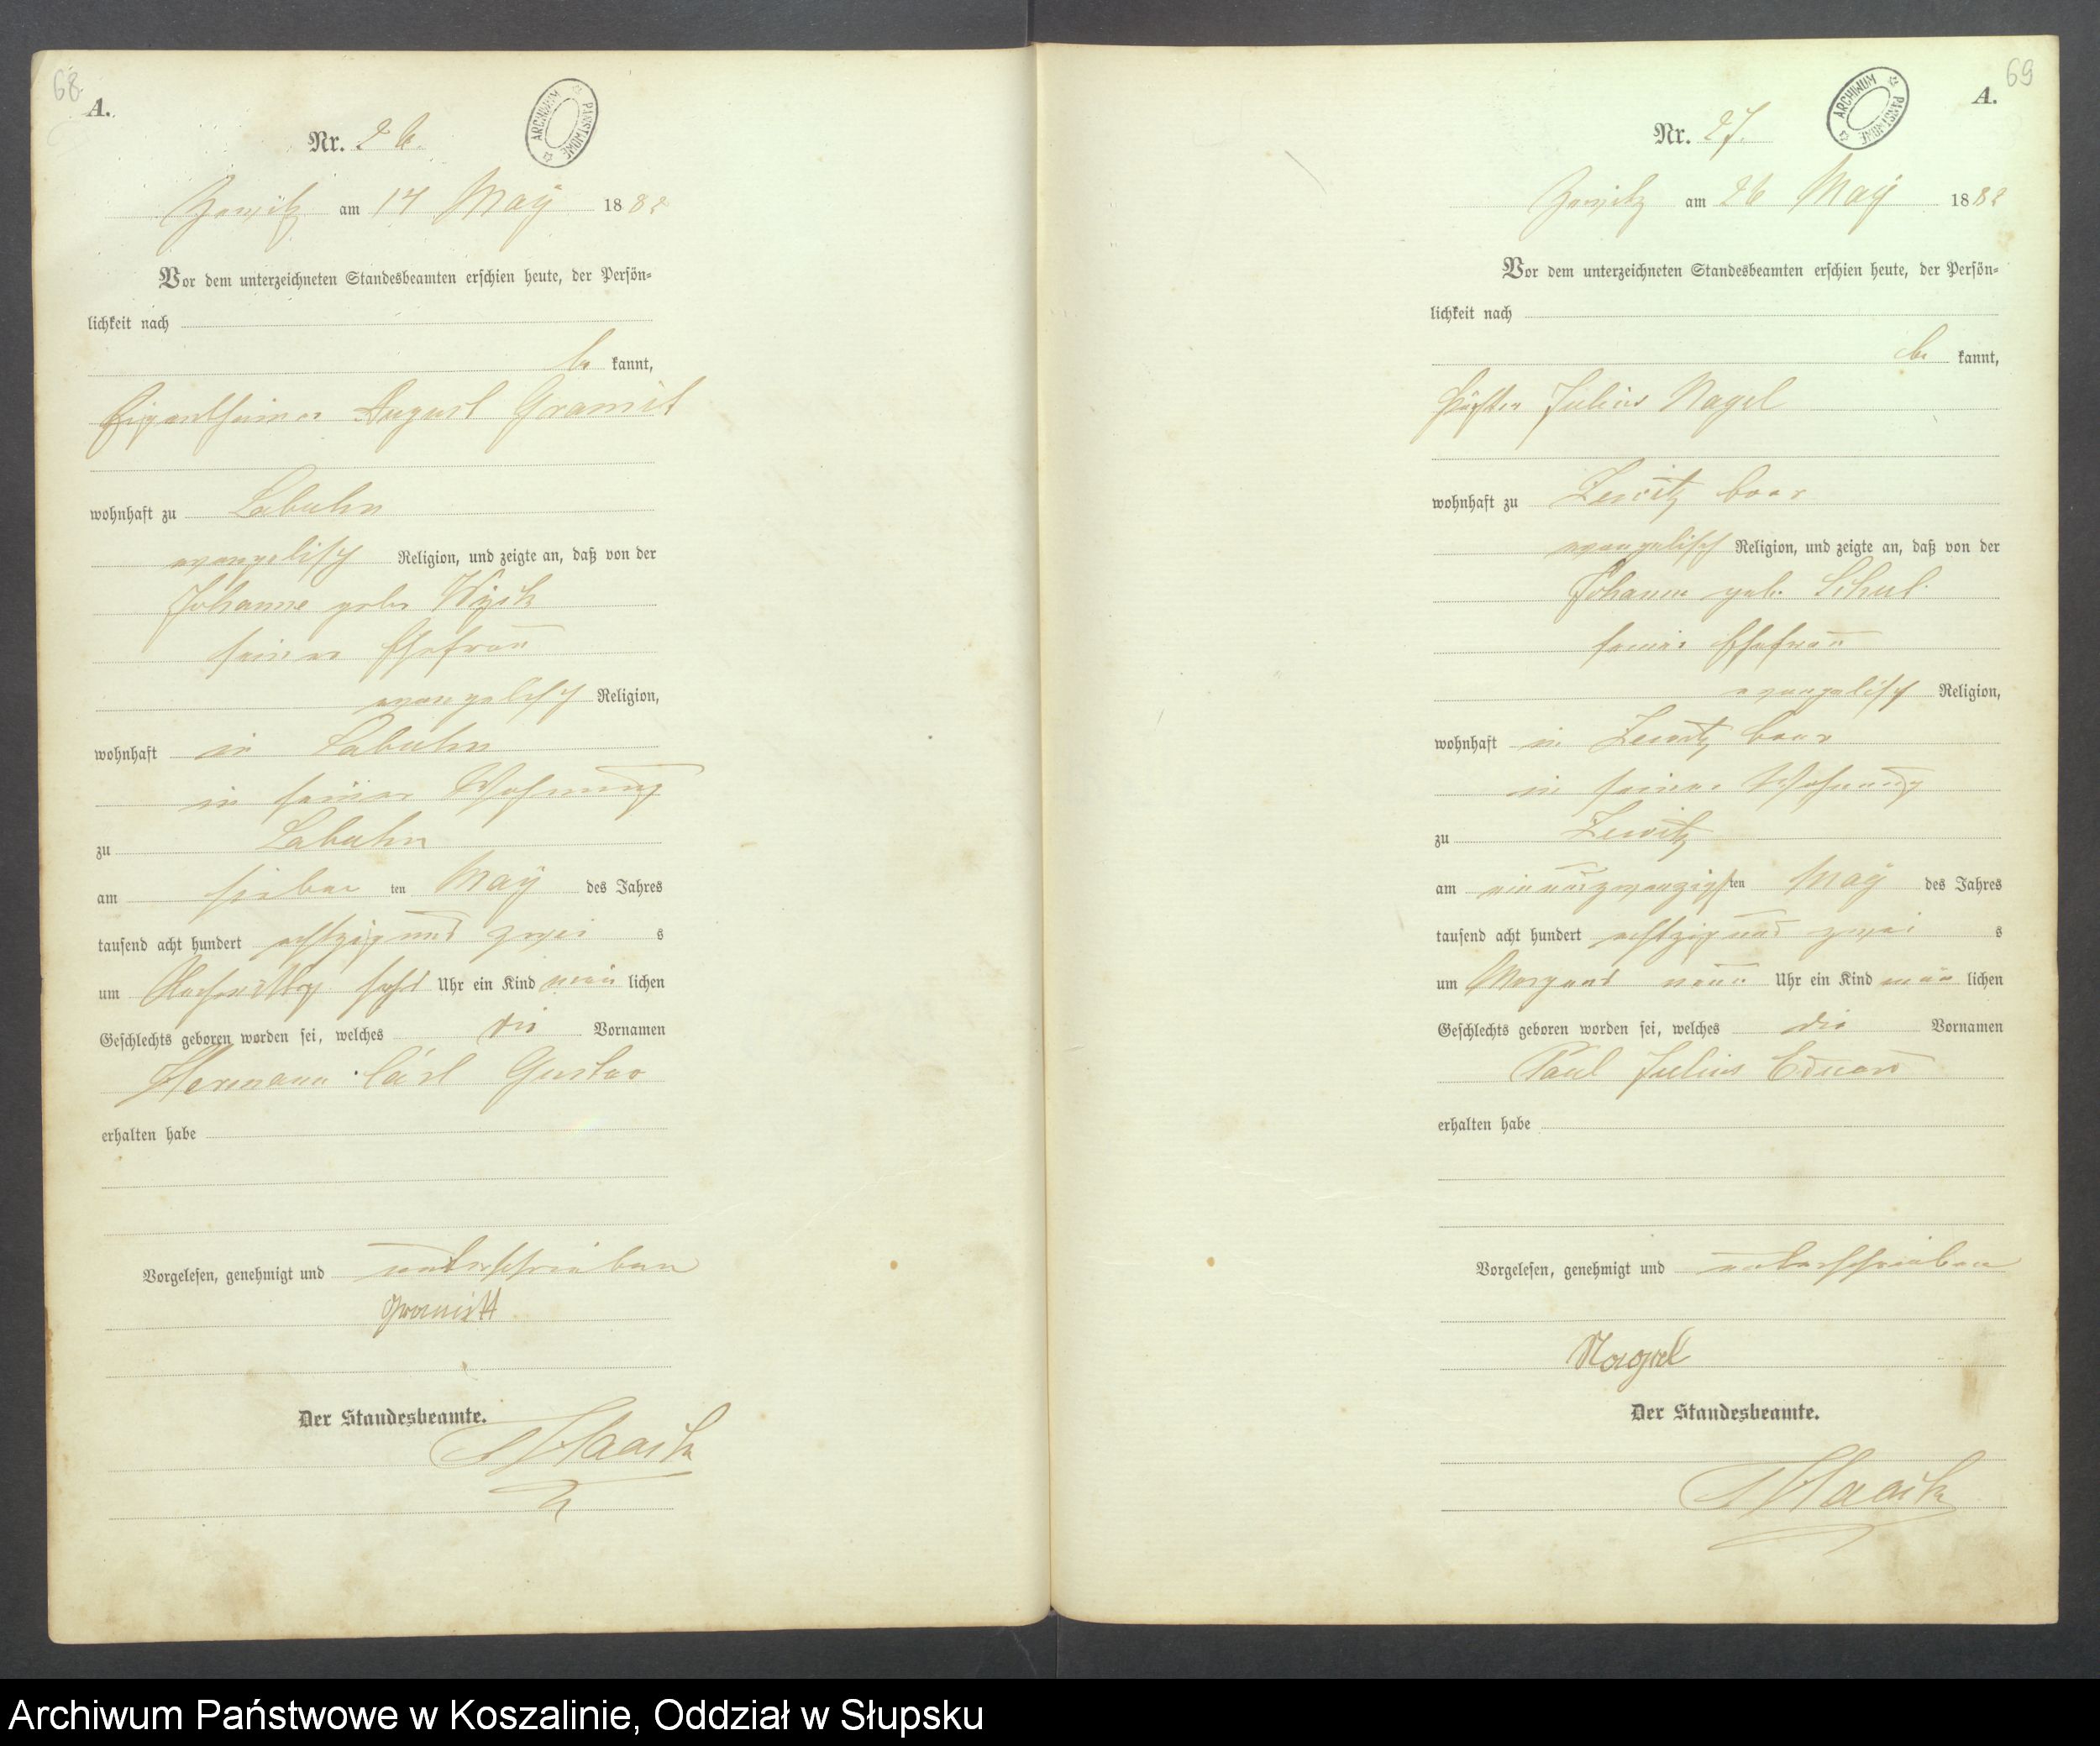 68
A.
ARCHIWUM PAŃSTWOWE
Nr. 26.
am 14 May 1882
Vor dem unterzeichneten Standesbeamten erschien heute, der Persön-
lichkeit nach
be kannt,
Eigenthümer August Gramit
wohnhaft zu Labuhn
evangelisch Religion, und zeigte an, daß von der
Johanne gebr
seiner Ehefrau
evangelisch Religion,
wohnhaft in Labuhn
in seiner Wohnung
zu Labuhn
am sieben ten May des Jahres
tausend acht hundert achtzig und zwei s
um Nachmittag sechs Uhr ein Kind män lichen
Geschlechts geboren worden sei, welches die Vornamen
Hermann Carl Gustav
erhalten habe
Vorgelesen, genehmigt und unterschrieben
Gramitt
Der Standesbeamte.
69
A.
ARCHIWUM PAŃSTWOWE
Nr. 27.
am 26 May 1882
Vor dem unterzeichneten Standesbeamten erschien heute, der Persön-
lichkeit nach
be kannt,
Pächter Julius Nagel
wohnhaft zu Zewitz
evangelisch Religion, und zeigte an, daß von der
geb.
seiner Ehefrau
evangelisch Religion,
wohnhaft in Zewitz
in seiner Wohnung
zu Zewitz
am einundzwanzigsten May des Jahres
tausend acht hundert achtzig und zwei s
um Morgens neun Uhr ein Kind män lichen
Geschlechts geboren worden sei, welches die Vornamen
Paul Julius Eduard
erhalten habe
Vorgelesen, genehmigt und unterschrieben
Nagel
Der Standesbeamte.
Archiwum Państwowe w Koszalinie, Oddział w Słupsku